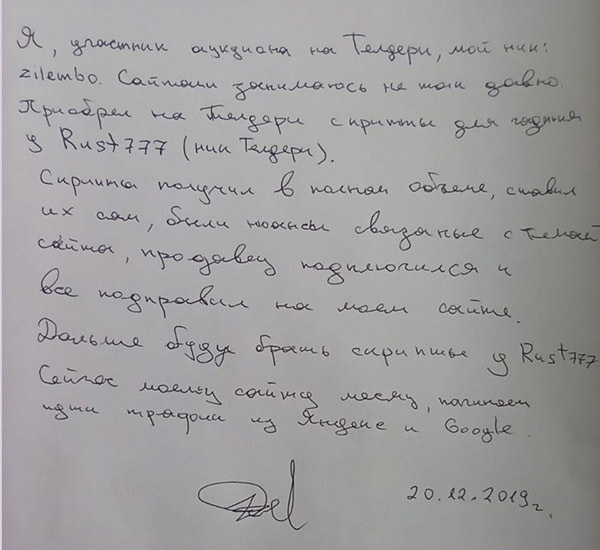 Я, участник аукциона на Телдери, мой ник:
zilembo. Сайтами занимаюсь не так давно.
Приобрел на Телдери скрипты для гадания
у Rust777 (ник Телдери).
Скрипты получил в полном объеме, ставил
их сам, были нюансы связаные с темой
сайта, продавец подключился и
все подправил на моем сайте.
Дальше буду брать скрипты у Rust777
Сейчас моему сайту месяц, начинает
идти трафик из Яндекс и Google.
20.12.2019г.